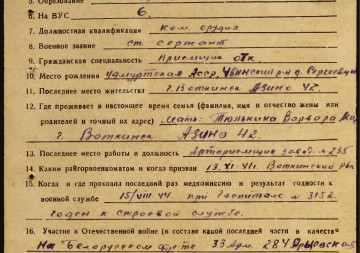 5. Образование
6. На ВУС 6.
7. Должностная квалификация ком. орудия
8. Военное звание ст. сержант
9. Гражданская специальность Приемщик ОТК
10. Место рождения Удмуртская Асср,
11. Последнее место жительства г. Воткинск Азино 42.
12. Где проживает в настоящее время семья (фамилия, имя и отчество жены или
родителей и точный их адрес) Мать: Тюлькина Варвара
г. Воткинск Азино 42.
13. Последнее место работы и должность завод № 235
14. Каким райгорвоенкоматом и когда призван 13. XI 41г. Воткинский
15. Когда и где проходил последний раз медкомиссию и результат годности к
военной службе 15/VIII 44. при Госпитале № 3152.
Годен к строевой службе.
16. Участие в Отечественной войне (и составе какой последней части и в качестве
На "Белорусском фронте 33 Арм. 284